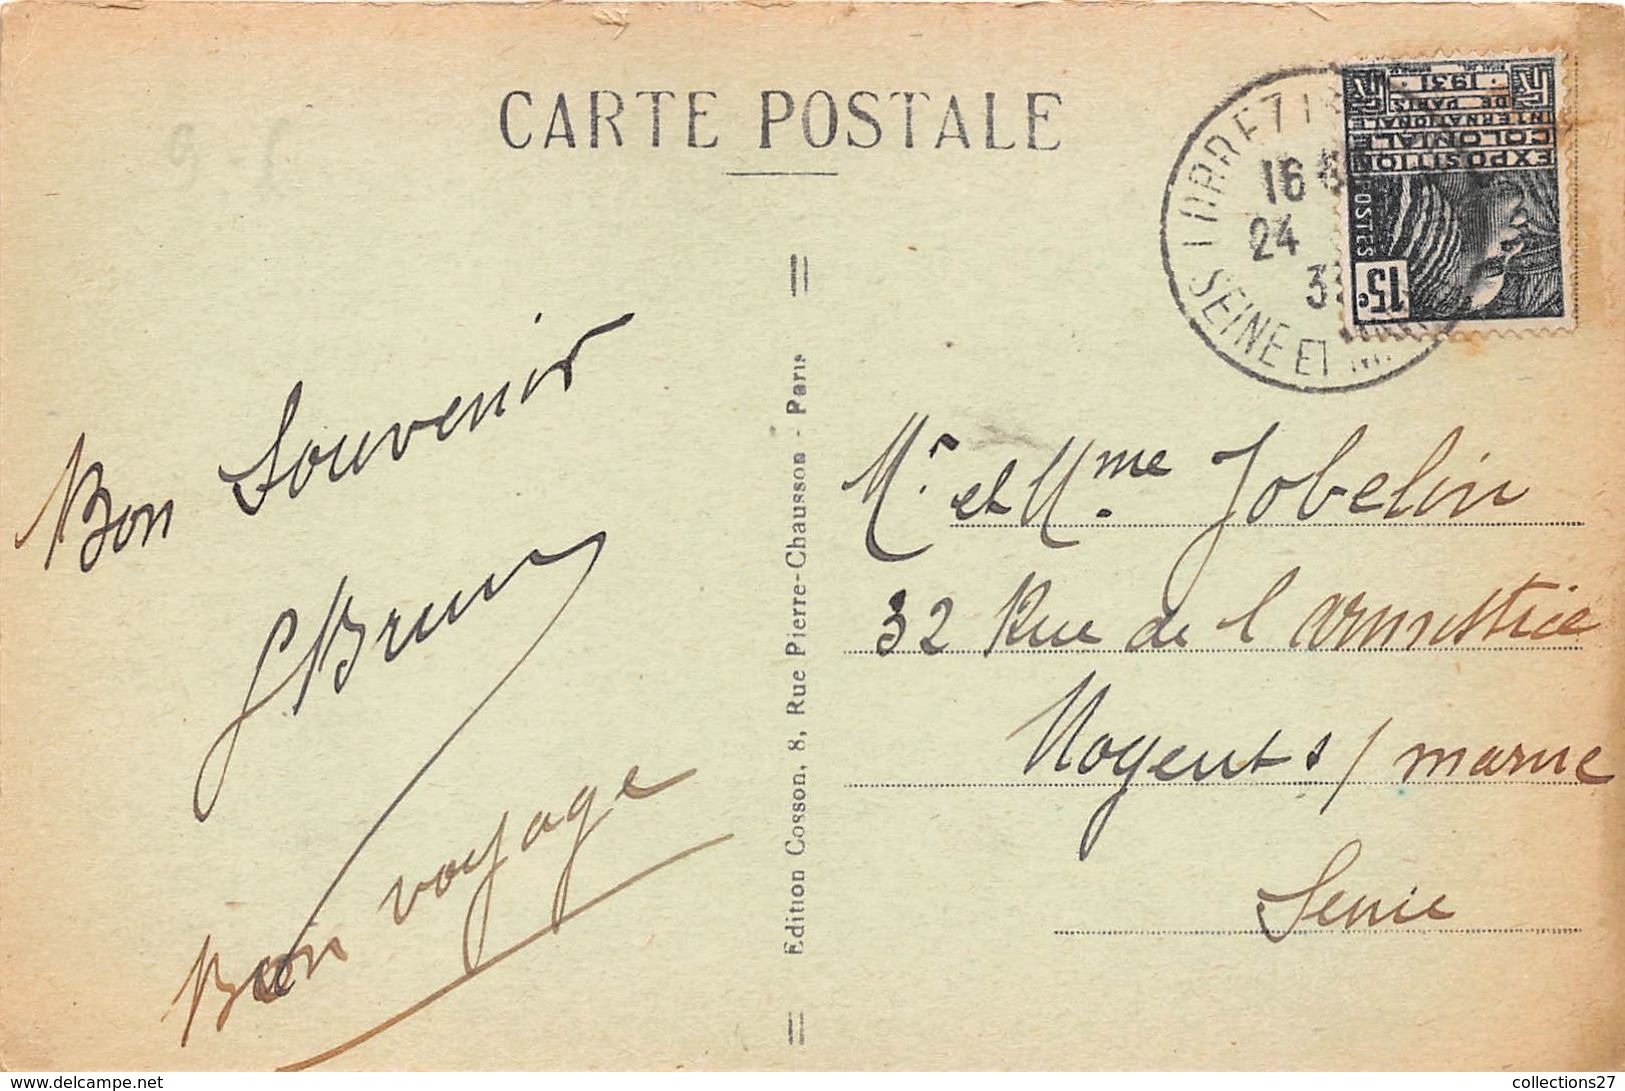 CARTE POSTALE
Bon Souvenir
Bon voyage
Edition Cosson, 8, Rue Pierre-Chausson - Paris
16
24
SEINE ET M
1931
DE PARIS
INTERNATIONALE
COLONIALE
EXPOSITION
POSTES
15c
Mr. et Mme Jobelin
32 Rue de l armistice
Nogent s/marne
Seine
www.delcampe.net
collections27